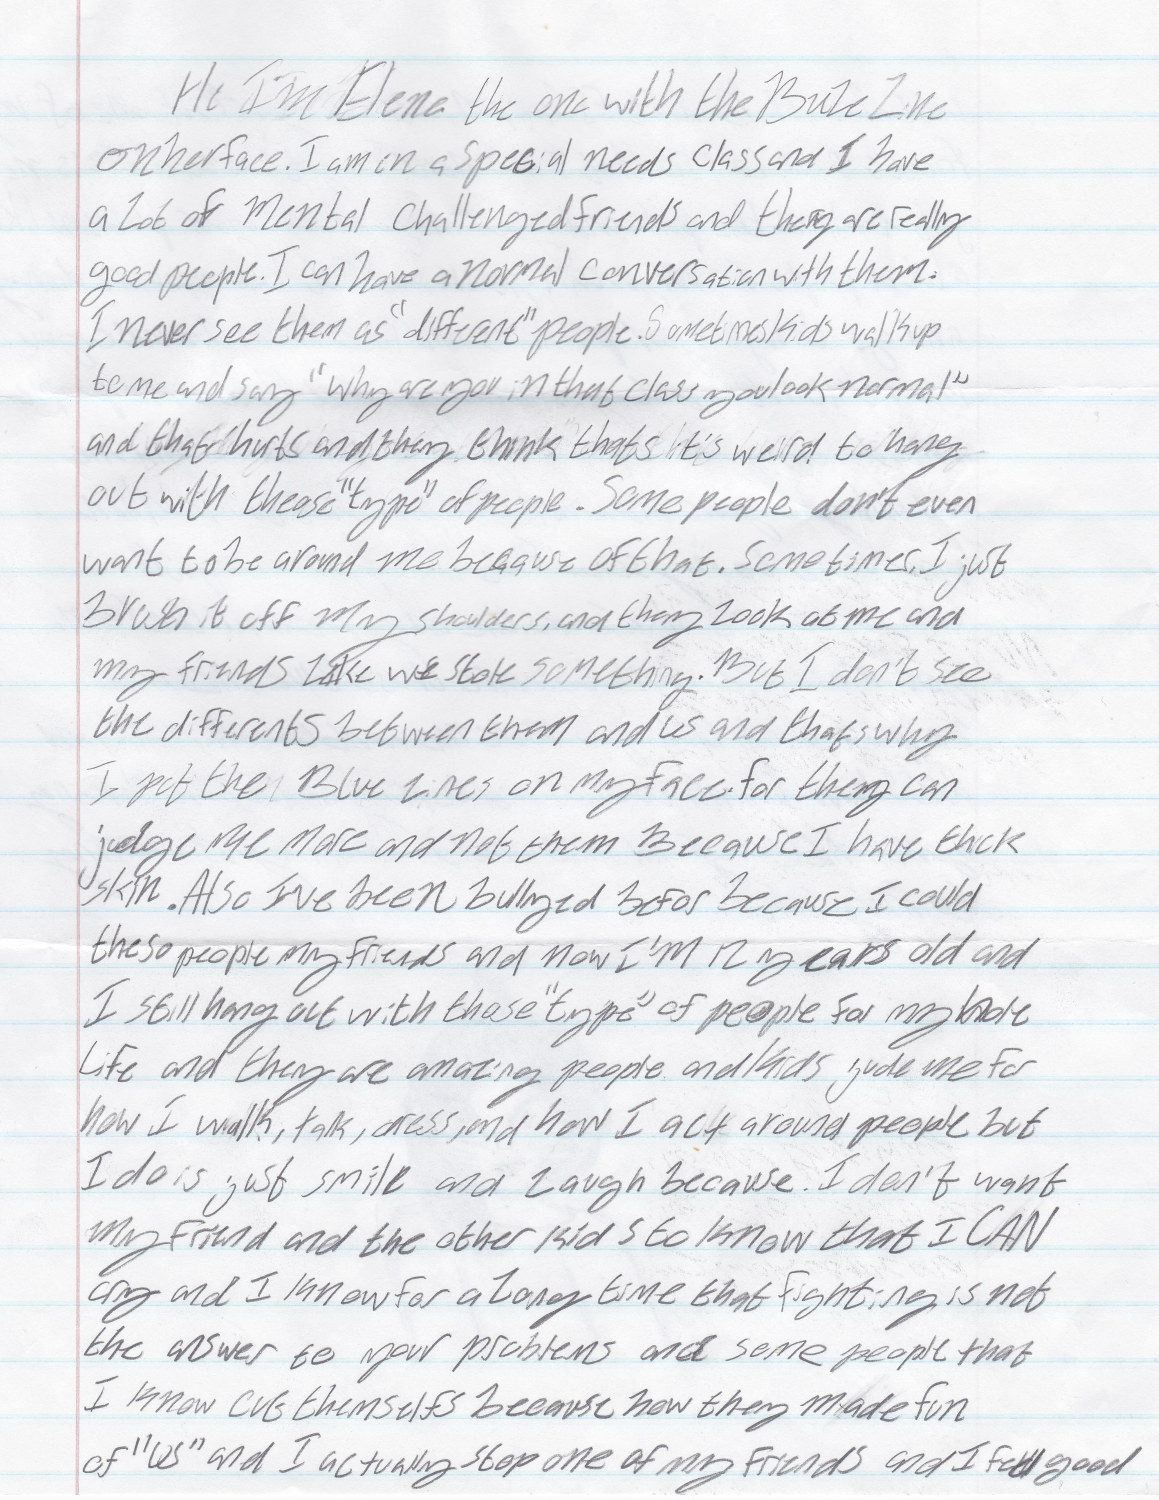 Hi I'm Elena the one with the Bule Line
on her face. I am in a special needs class and I have
a lot of mental challenged friends and they are really
good people. I can have a normal conversation with them.
I never see them as "different" people. Sometimes kids walk up
to me and say "why are you in that class you look normal"
and that hurts and they think thats it's weird to hang
out with thease "type" of people. Some people don't even
want to be around me beacause of that. Sometimes, I just
brush it off my shoulders, and they look at me and
my friends like we stole something. But I don't see
the differents between them and us and thats why
I put the Blue Lines on my face. for they can
judge me more and not them Because I have thick
skin. Also I've been bullyed befor because I could
these people my friends and now I'm 12 years old and
I still hang out with those "type" of people for my hole
Life and they are amazing people and kids jude me for
how I walk, talk, dress, and how I act around people but
I do is just smile and Laugh because. I don't want
my friend and the other kids to know that I CAN
cry and I know for a long time that fighting is not
the answer to your problems and some people that
I know cut themselfs because how they made fun
of "us" and I actually stop one of my friends and I feel good